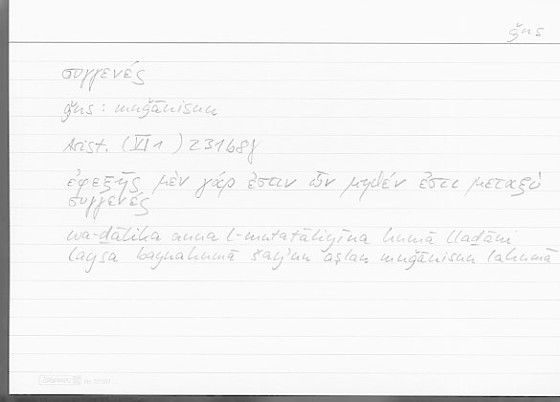 ǧns
συγγενές
ǧns : muǧānisun
Arist. (VI 1) 231b8f
ἐφεξῆς μὲν γάρ ἐστιν ὧν μηθέν ἐστι μεταξὺ
συγγενές
wa-ḏālika anna l-mutatāliyīna humā lladāni
laysa baynahumā šayʾun aṣlan muǧānisun lahumā